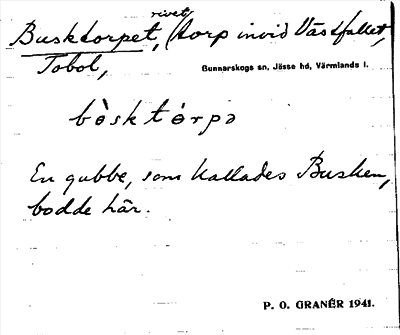 rivet,
Busktorpet, (torp invid Västfallet,
Tobol,
Gunnarskogs sn, Jösse hd, Värmlands l.
bòsktórpə
En gubbe, som kallades Busken,
bodde här.
P. O. GRANÉR 1941.